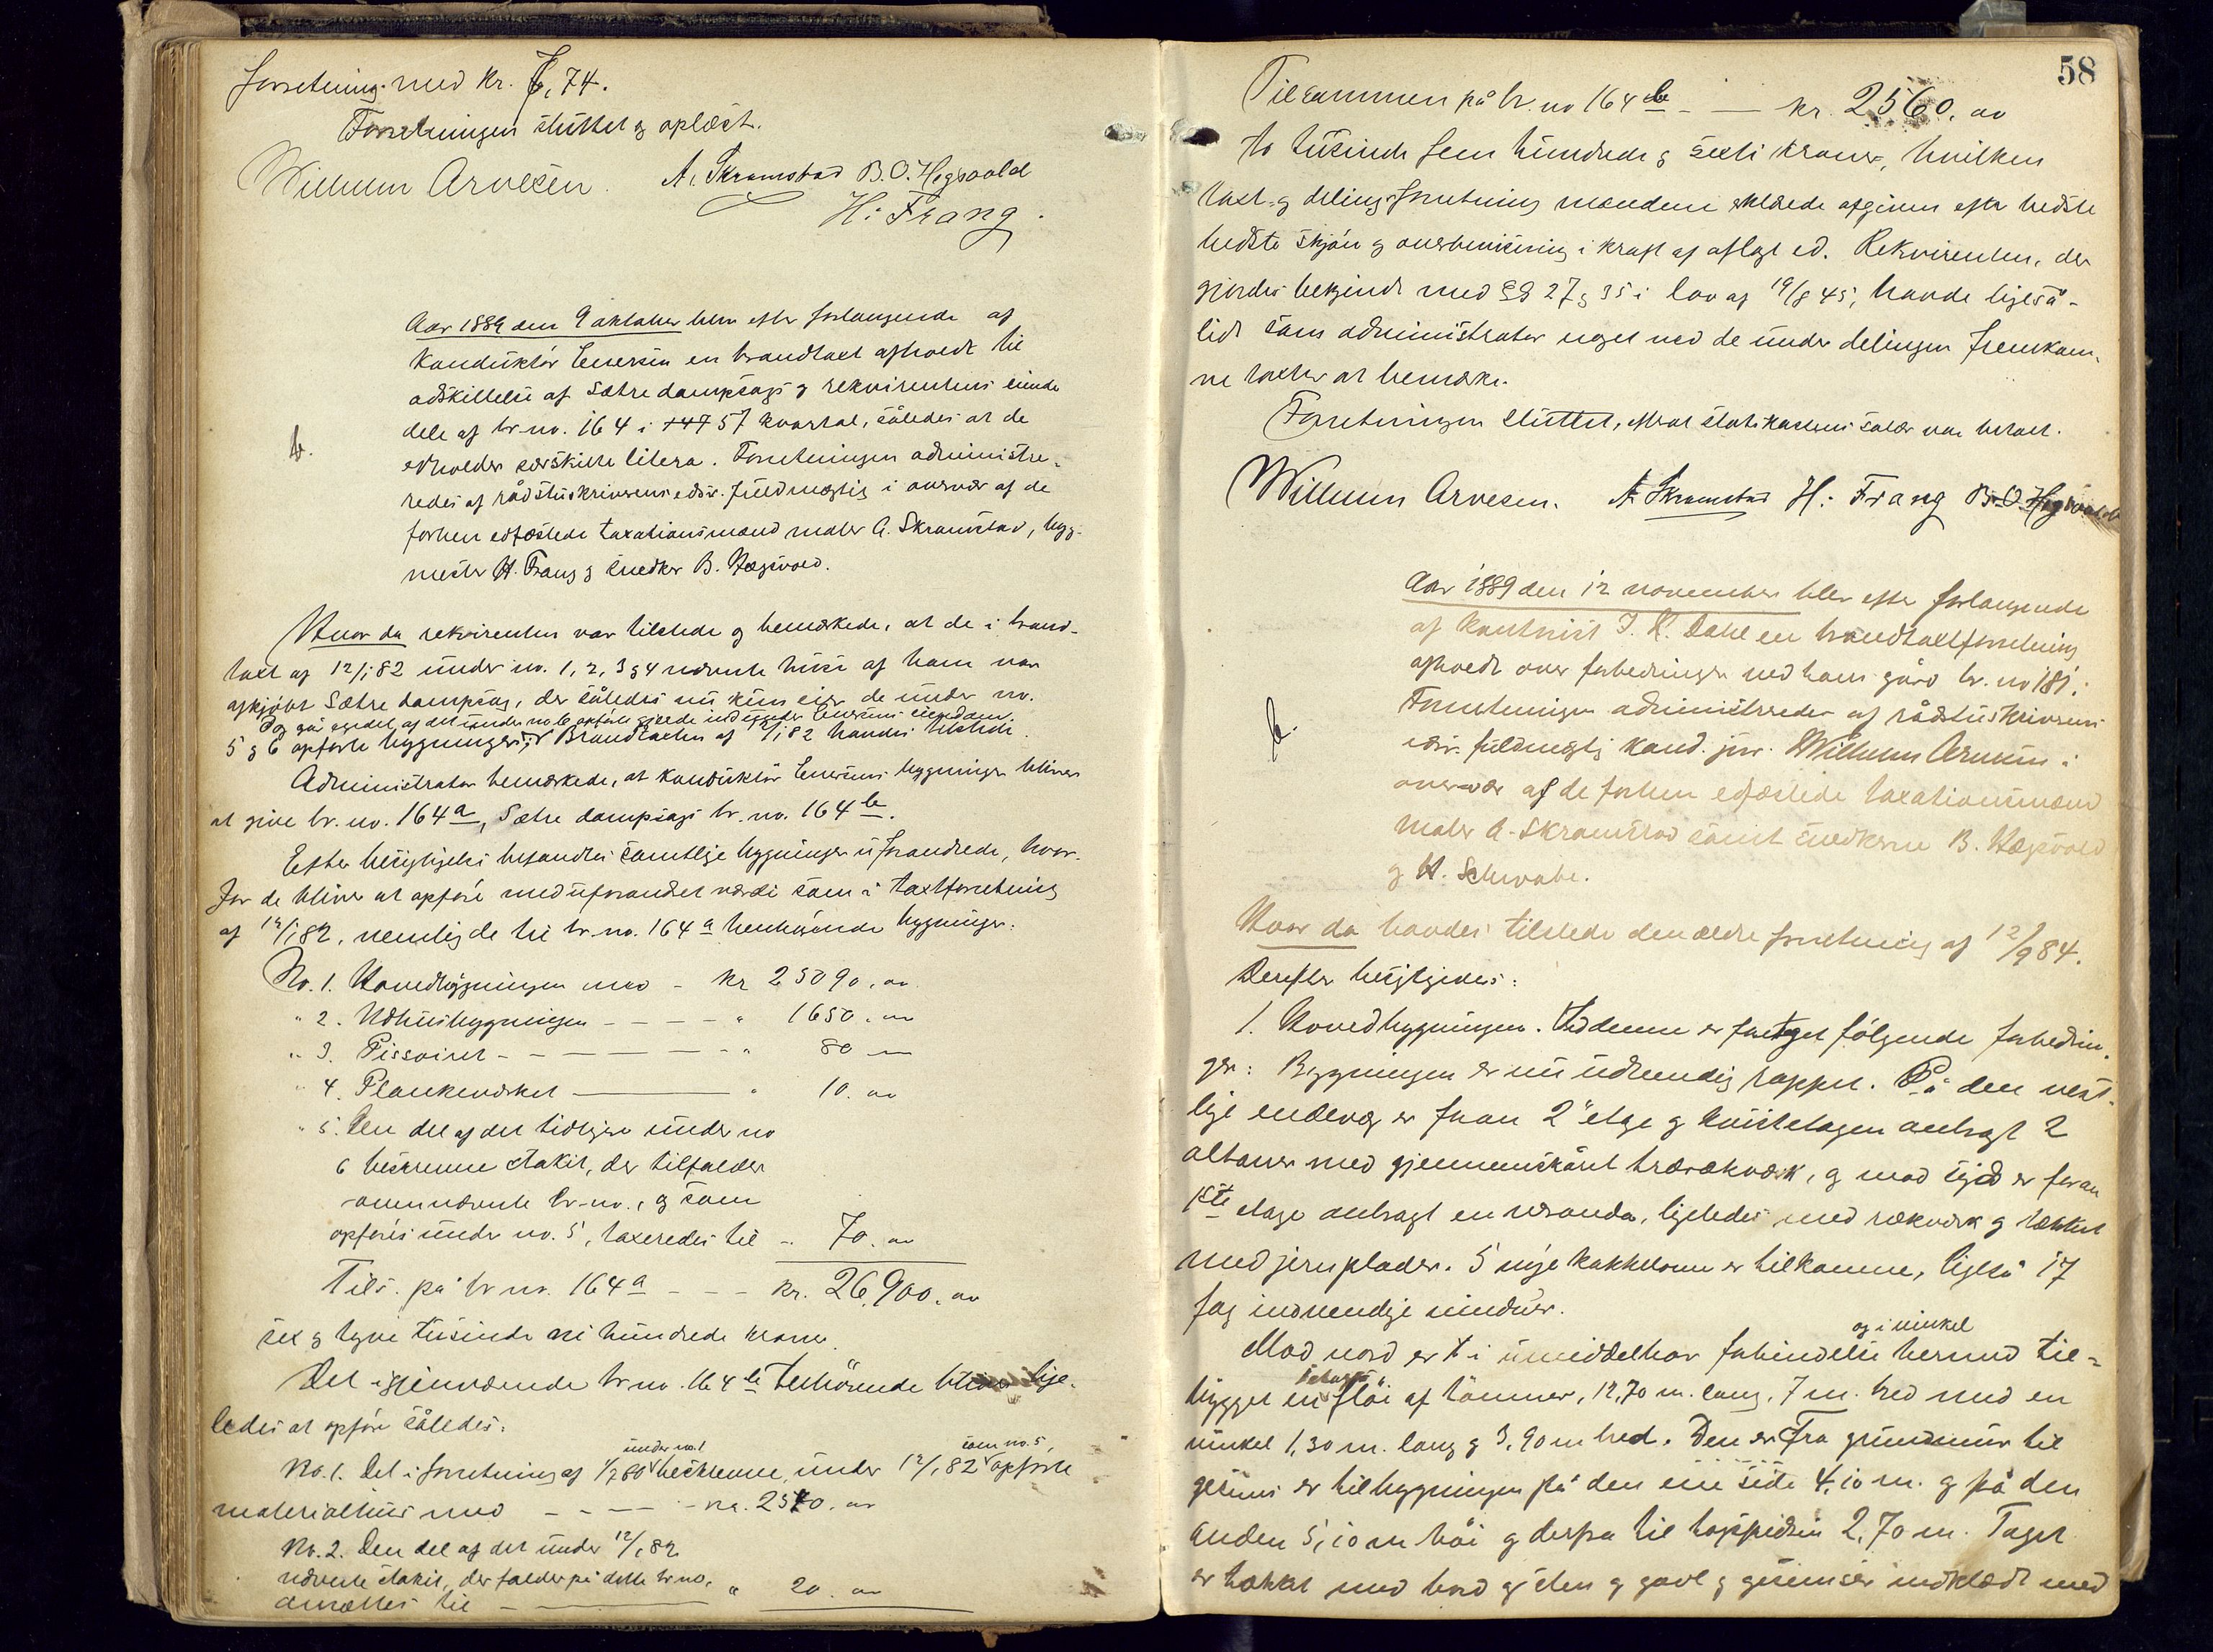 forretning med kr. 6,74.
Forretningen sluttet og oplæst.
Wilhelm Arvesen. A. Skramstad B.O. Hegsvold
H: Frang.
Aar 1889 den 9 oktober blev efter forlangende af
konduktör Enersen en brandtaxt afholdt til
adskillelse af Sætre dampsags og rekvirentens eiende
dele af br. no. 164 i 57 kvartal, således at de
erholder særskilte litera. Forretningen administre-
b.
redes af rådstuskriverens edsv. fuldmægtig i overvær af de
forhen edfæstede taxationsmænd maler A. Skramstad, byg-
mester H. Frang og snedker B. Hegsvold.
Hvor da rekvirenten var tilstede og bemærkede, at de i brand-
taxt af 12/1 82 under no. 1, 2, 3 og 4 nævnte huse af ham var
afkjöbt Sætre dampsag, der således nu kun eier de under no.
Dog går endel af det under no. 6 opförte gjerde ind under Enersens eiendom.
5 og 6 opförte bygninger. Brandtaxten af 12/1 82 havdes tilstede.
Administrator bemærkede, at konduktör Enersens bygninger bliver
at give br. no. 164a, Sætre dampsags br. no. 164b.
Efter besigtigelse befandtes samtlige bygninger uforandrede, hvor-
for de bliver at opföre med uforandret værdi som i taxtforretning
af 12/1 82, nemlig de til br. no. 164a henhörende bygninger:
No. 1. Hovedbygningen med - kr 25090. 00
" 2. Udhusbygningen - - - - " 1650. 00
" 3. Pissoiret - - - - - " 80 00
" 4. Plankeværket - " 10. 00
" 5. Den del af det tidligere under no
6 beskrevne stakit, der tilfalder
ovennævnte br. no., og som
opföres under no. 5, taxeredes til - 70. 00
Tils. på br no. 164a - - - kr. 26,900. 00
sex og tyve tusinde ni hundrede kroner.
Det igjenværende br no. 164b tilhörende bliver lige-
ledes at opföre således:
under no. 1 som no. 5,
No. 1. Det i forretning af 1/7 80 beskrevne, under 12/1 82 opförte
materialhus med - - - - kr. 2540. 00
No. 2. Den del af det under 12/1 82
nævnte stakit, der falder på dette br. no.
ansættes til - " 20. 00
58
Tilsammen på br. no 164b - - kr. 2560. 00
to tusinde fem hundrede og sexti kroner, hvilken
taxt- og delingsforretning mændene erklærede afgiven efter bedste
bedste skjön og overbevisning i kraft af aflagt ed. Rekvirenten, der
gjordes bekjendt med §§ 27 og 35 i lov af 19/8 45, havde ligeså-
lidt som administrator noget ved de under delingen fremkom-
ne taxter at bemærke.
Forretningen sluttet, efterat statskassens salær var betalt.
Wilhelm Arvesen. A. Skramstad H: Frang B.O. Hegsvold
Aar 1889 den 12 november blev efter forlangende
af kontorist J. K. Dahl en brandtaxtforretning
afholdt over forbedringer ved hans gård br. no 181.
Forretningen administreredes af rådstuskriverens
b.
edsv. fuldmægtig kand. jur. Wilhelm Arvesen i
overvær af de forhen edfæstede taxationsmænd
maler A. Skramstad samt snedkerne B. Hegsvold
og H. Schwabe.
Hvor da havdes tilstede den ældre forretning af 12/9 84.
Derefter besigtigedes:
1. Hovedbygningen. Ved denne er foretaget fölgende forbedrin-
ger: Bygningen er nu udvendig rappet. På den vest-
lige endevæg er foran 2" etage og kvistetagen anbragt 2
altaner med gjennemskåret trærækværk, og mod syd er foran
1ste etage anbragt en veranda, ligeledes med rækværk og tækket
med jernplader. 5 nye kakkelovne er tilkomne, ligeså 17
fag indvendige vinduer.
og i vinkel
Mod nord er i umiddelbar forbindelse hermed til-
bygget en flöi af tömmer, 12,70 m. lang, 7 m. bred med en
vinkel 1,30 m. lang og 3,90 m bred. Den er Fra grundmur til
gesims er tilbygningen på den ene side 4,10 m. og på den
anden 5,10 m höi og derfra til tagspidsen 2,70 m. Taget
er tækket med bord og sten og gavl og gesimser indklædt med